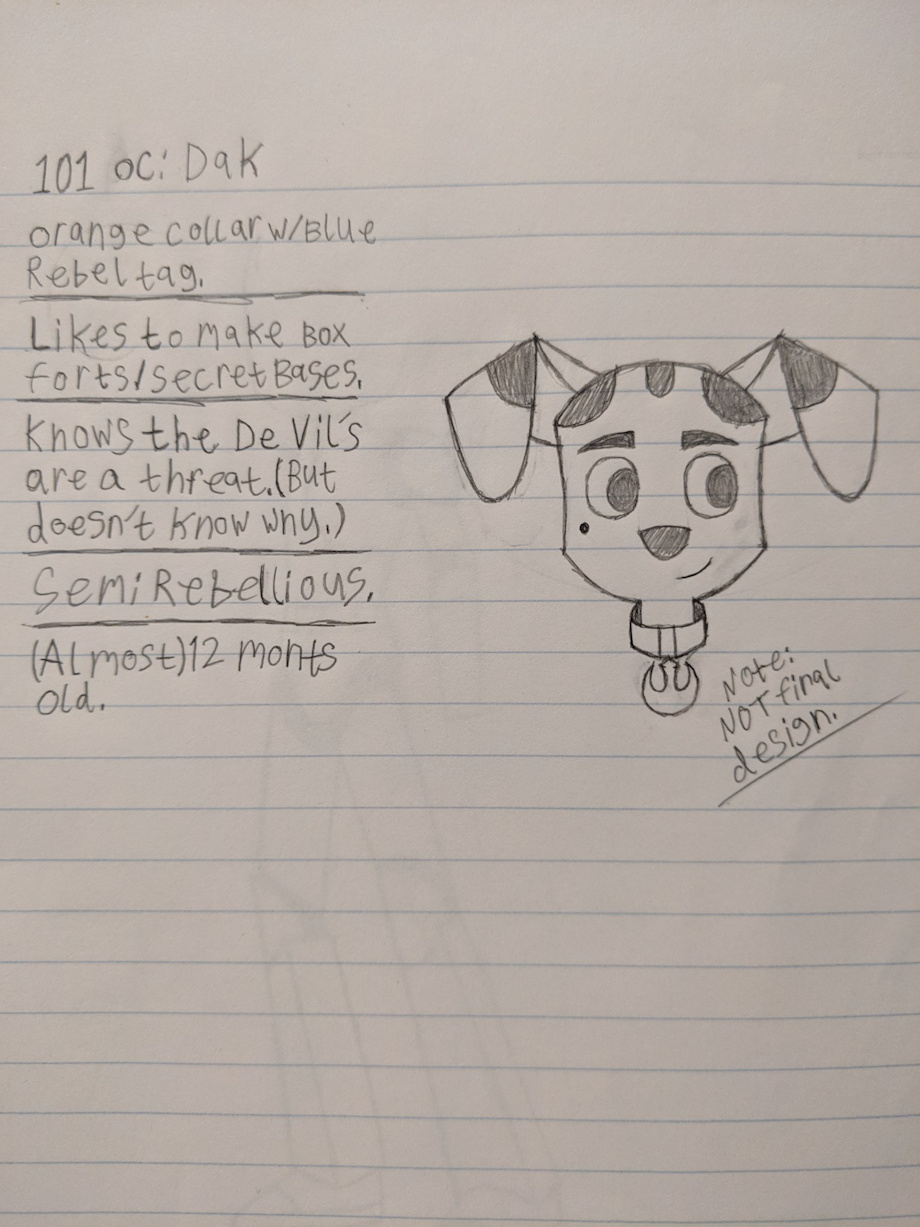 101 OC: Dak
orange collar w/Blue
Rebel tag.
Likes to make Box
forts/secret Bases.
Knows the De Vil's
are a threat.(But
doesn't know why.)
Semi Rebellious.
(Almost)12 monts
old.
Note:
NOT final
design.